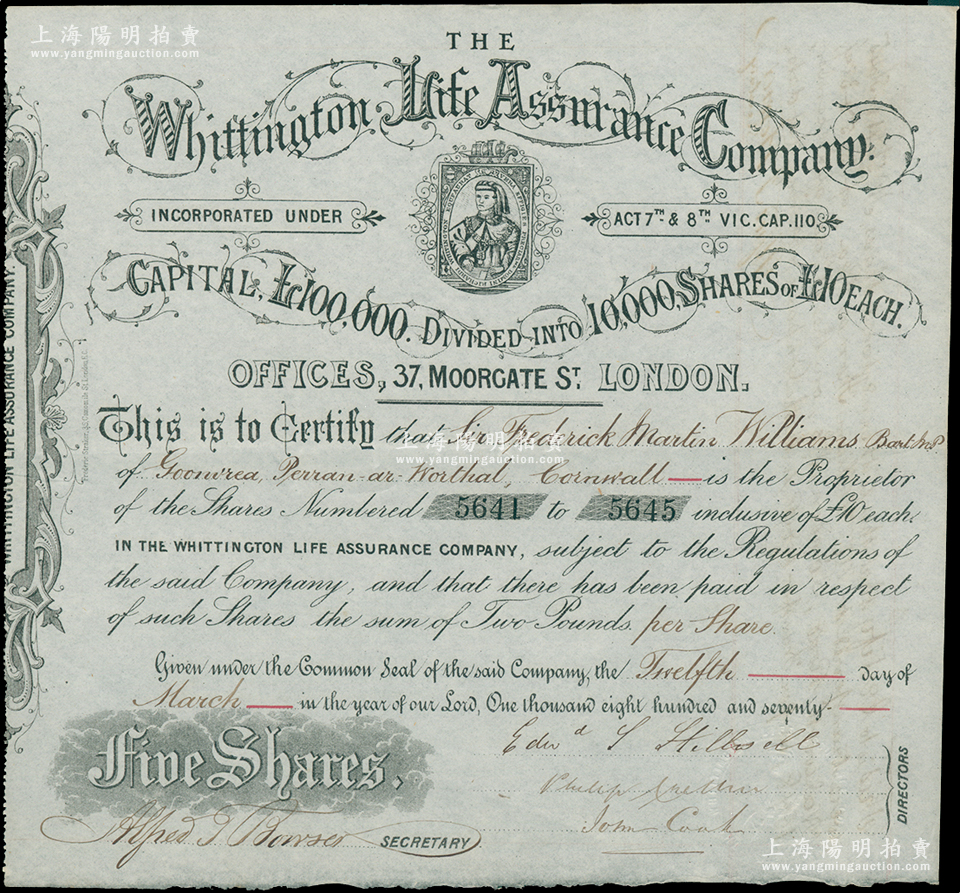 上海陽明拍賣
www.yangmingauction.com
THE
Whittington Life Assurance Company.
INCORPORATED UNDER
ACT 7TH & 8TH VIC. CAP. 110.
CAPITAL, £100,000. DIVIDED INTO 10,000, SHARES OF £10 EACH.
OFFICES, 37, MOORGATE ST. LONDON.
This is to Certify that Sir Frederick Martin Williams Bart. M.P.
of Goonvrea, Perran-ar-Worthal, Cornwall — is the Proprietor
of the Shares Numbered 5641 to 5645 inclusive of £10 each.
IN THE WHITTINGTON LIFE ASSURANCE COMPANY, subject to the Regulations of
the said Company, and that there has been paid in respect
of such Shares the sum of Two Pounds per Share.
Given under the Common Seal of the said Company, the Twelfth — day of
March — in the year of our Lord, One thousand eight hundred and seventy —
Five Shares.
Edwd S
Philip
John Cook
DIRECTORS
Alfred T Bowser SECRETARY
WHITTINGTON LIFE ASSURANCE COMPANY.
上海陽明拍賣
www.yangmingauction.com
上海陽明拍賣
www.yangmingauction.com